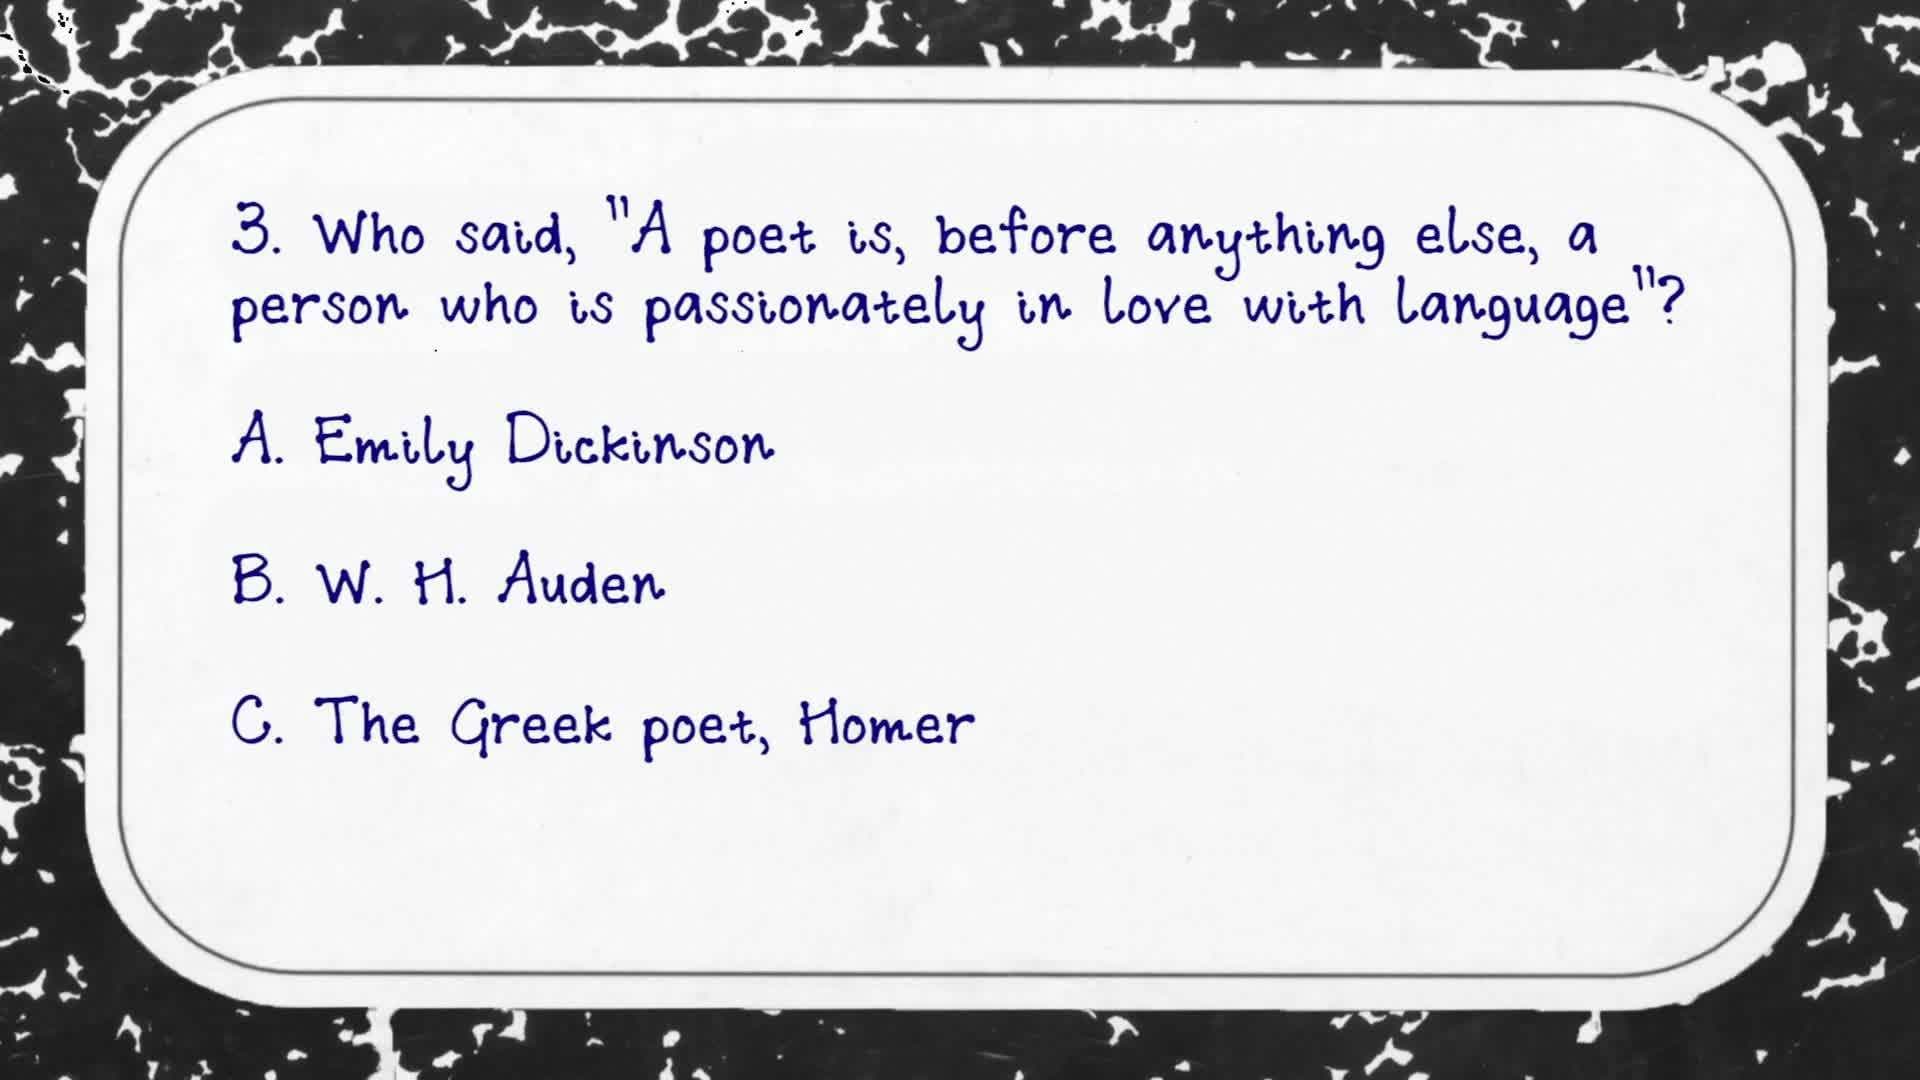 3. Who said, "A poet is, before anything else, a
person who is passionately in love with language"?
A. Emily Dickinson
B. W. H. Auden
C. The Greek poet, Homer